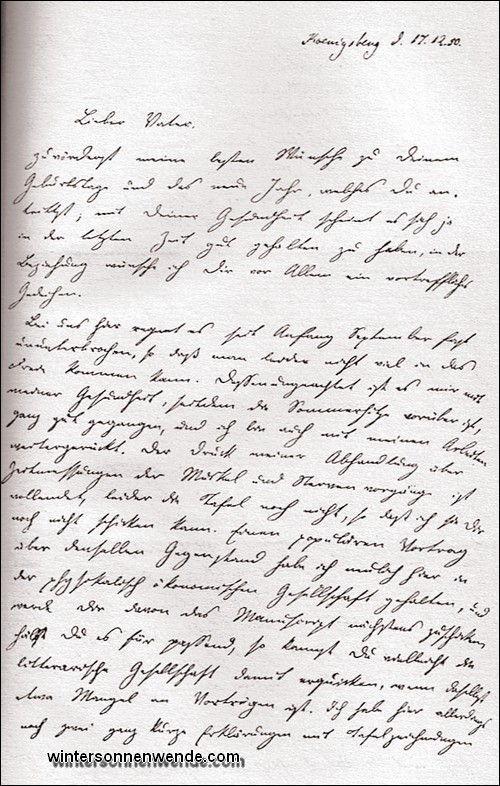 Koenigsberg d. 17.12.50.
Lieber Vater.
zuvörderst meine besten Wünsche zu Deinem
Geburtstage und das neue Jahr, welches Du an-
trittst; mit Deiner Gesundheit scheint es sich ja
in der letzten Zeit gut gehalten zu haben, in der
Beziehung wünsche ich Dir vor Allem ein vortreffliches
Gedeihn.
Bei uns hier regnet es seit Anfang September fast
ununterbrochen, so daß man leider nicht viel in das
Freie kommen kann. Dessenungeachtet ist es mir mit
meiner Gesundheit, seitdem die Sommerhitze vorüber ist,
ganz gut gegangen, und ich bin auch mit meinen Arbeiten
weitergerückt. Der Druck meiner Abhandlung über
Zeitmessungen der Muskel und Nervenvorgänge ist
vollendet, leider die Tafel noch nicht, so daß ich sie Dir
noch nicht schicken kann. Einen populären Vortrag
über denselben Gegenstand habe ich neulich hier in
der physikalisch ökonomischen Gesellschaft gehalten, und
werde Dir davon das Manuscript nächstens zuschicken
hältst Du es für passend, so kannst Du vielleicht die
litterarische Gesellschaft damit erquicken, wenn daselbst
etwa Mangel an Vorträgen ist. Ich habe hier allerdings
noch zwei ganz kurze Erklärungen mit Tafelzeichnungen
wintersonnenwende.com